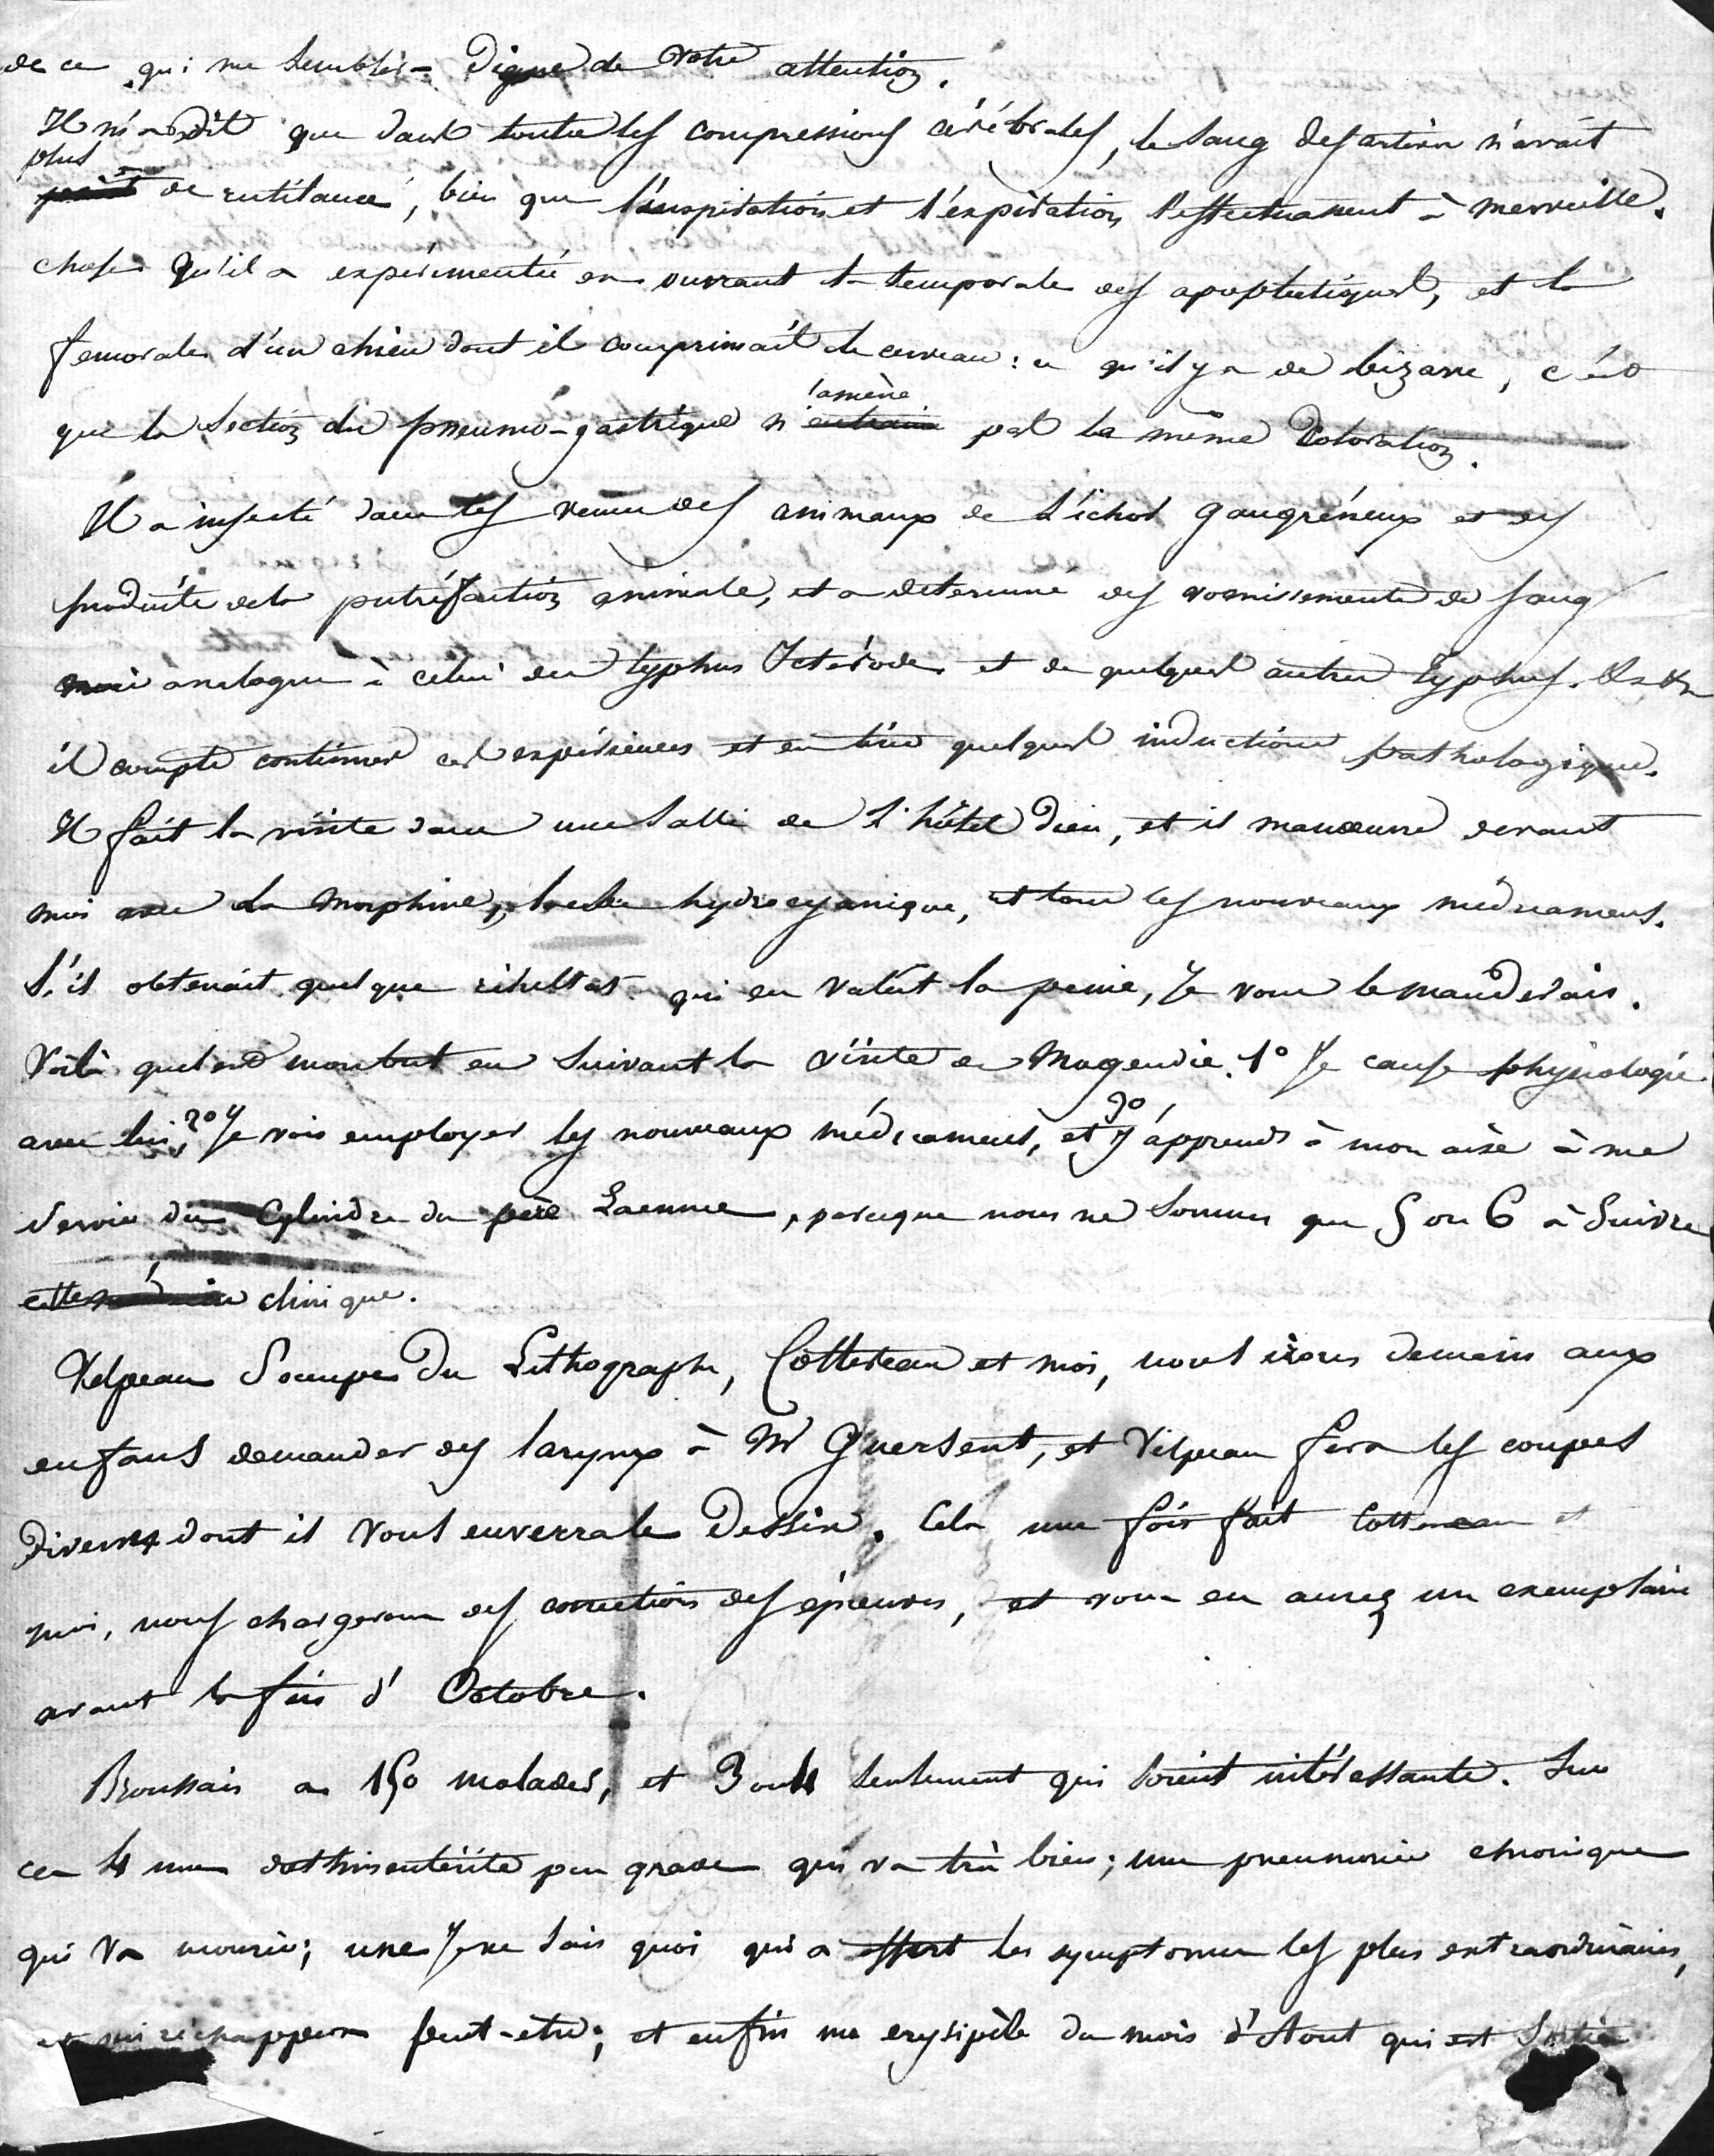 de ce qui me semblera digne de votre attention.
Il m'a dit que dans toutes les compressions cérébrales, le sang des artères n'avait
plus
point de rutilance, bien que l'inspiration et l'expiration s'effectuassent à merveille.
chose qu'il a expérimentée en ouvrant la temporale des apoplectiques, et la
femorale d'un chien dont il comprimait le cerveau : ce qu'il y a de bizarre, c'est
l'amène
que la section du pneumo-gastrique n' pas la même coloration.
Il a injecté dans les veines des animaux de l'ichor gangréneux et des
produits de la putréfaction animale, et a determiné des vomissements de sang
analogue à celui du typhus Icterode et de quelques autres typhus.
il compte continuer ces expériences et en tirer quelques inductions pathologiques.
Il fait la visite dans une salle de l'hôtel Dieu, et il manœuvre devant
moi avec la morphine, hydrocyanique, et tous les nouveaux médicamens.
S'il obtenait quelque résultat qui en valut la peine, je vous le manderais.
Voilà quel est mon but en suivant la visite de Magendie. 1° Je cause physiologie
3°
avec lui, 2° Je vois employer les nouveaux médicamens, et j'apprends à mon aise à me
servir du Cylindre du père Laennec, parceque nous ne sommes que 5 ou 6 à suivre
cette clinique.
Velpeau s'occupe du Lithographe, Cottereau et moi, nous irons demain aux
enfans demander des larynx à Mr Guersent, et Velpeau fera les coupes
diverses dont il vous enverra le dessin. Cela une fois fait Cottereau et
moi, nous chargerons des corrections des épreuves, et vous en aurez un exemplaire
avant la fin d'Octobre.
Broussais a 150 malades, et 3 ou 4 seulement qui soient intéressants. Sur
ces 4 une dothinentérite peu grave qui va très bien ; une pneumonie chronique
qui va mourir ; une je ne sais quoi qui a offert les symptomes les plus extraordinaires,
et qui réchappera peut-être ; et enfin un erysipèle du mois d'Aout qui est sortie